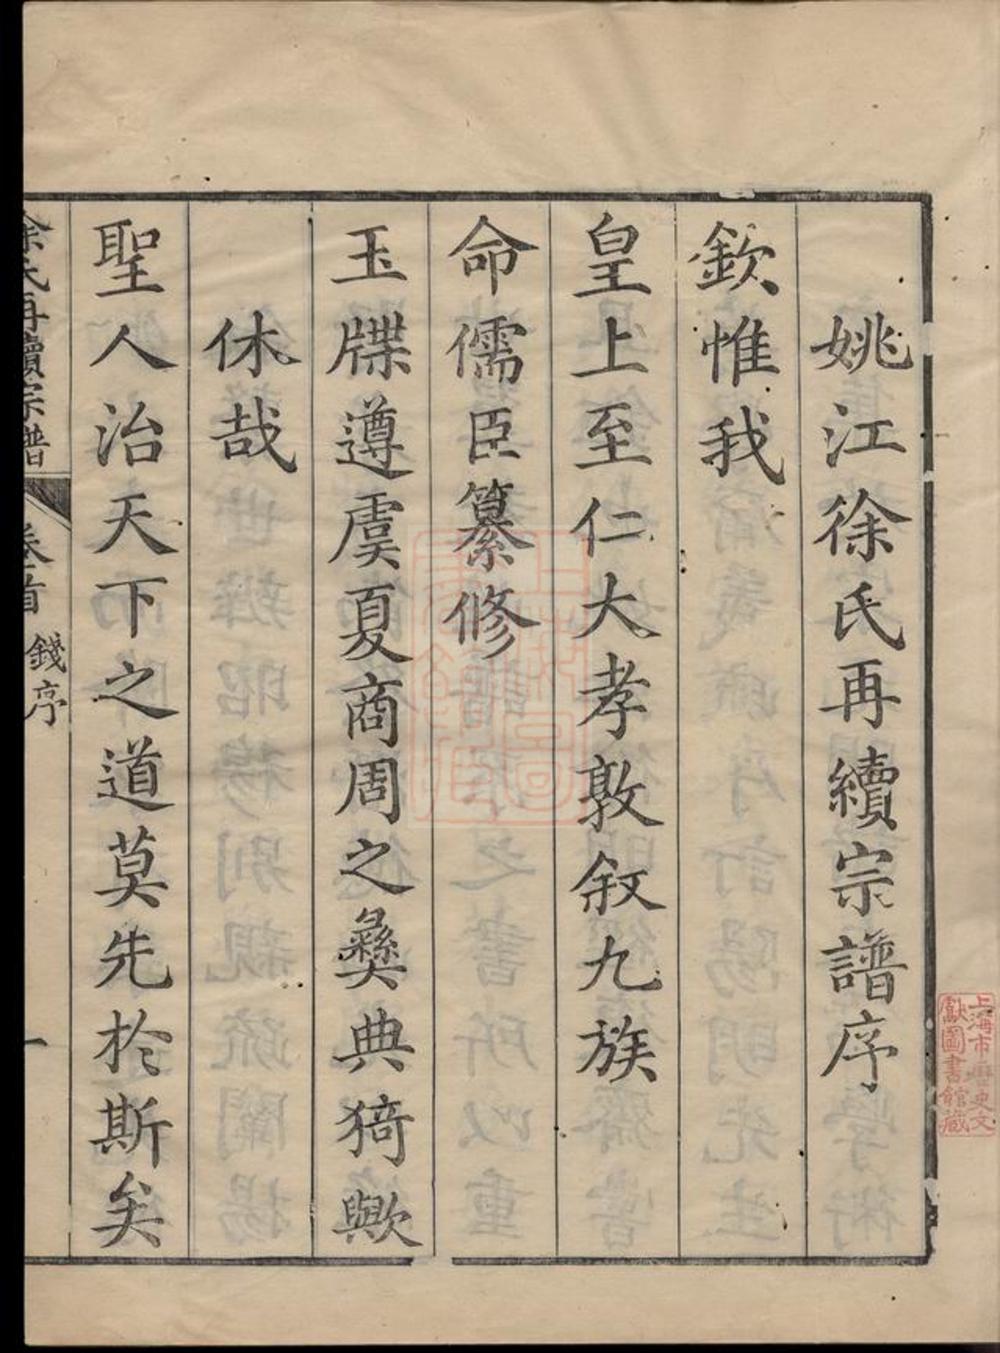 姚江徐氏再續宗譜序
欽惟我
皇上至仁大孝敦敘九族
命儒臣纂修
玉牒遵虞夏商周之彝典猗歟
休哉
聖人治天下之道莫先於斯矣
徐氏再續宗譜
卷首
錢序
一
上海市歷史文
獻圖書館藏